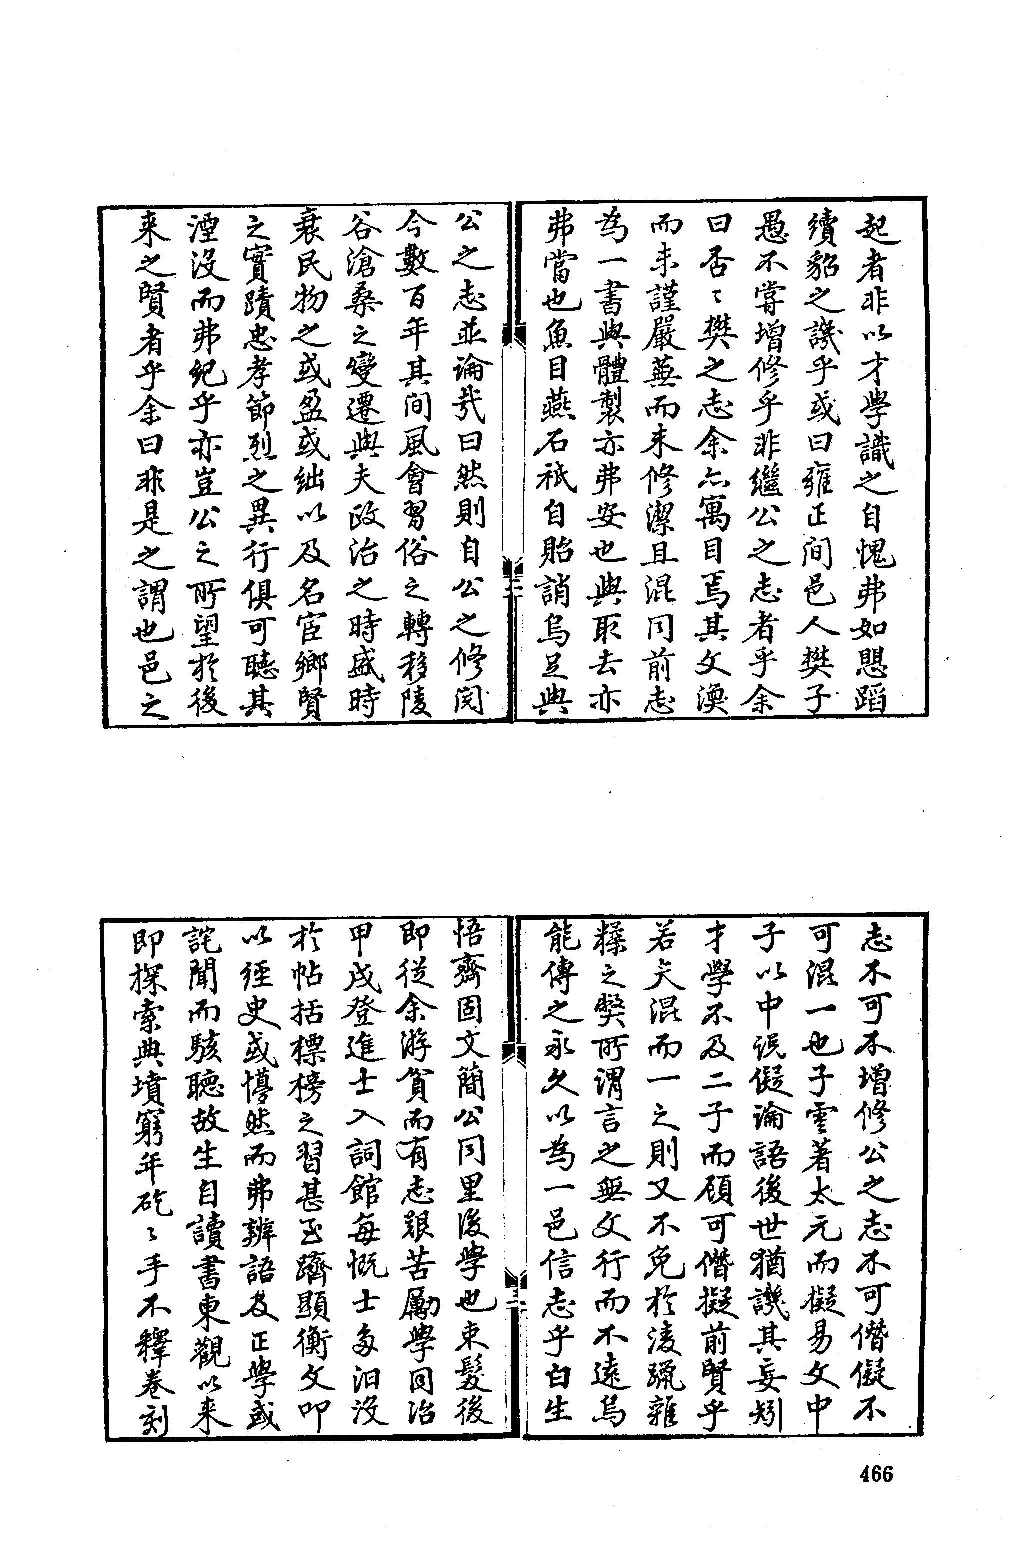 起者非以才學識之自愧弗如思蹈
續貂之譏乎或曰雍正间邑人樊子
愚不嘗增修乎非繼公之志者乎余
曰否〻樊之志余亦寓目焉其文渙
而未謹嚴蕪而未修潔且混同前志
為一書與體製亦弗安也與取去亦
弗當也魚目燕石祇自貽誚烏足與
公之志並論哉曰然則自公之修閲
今數百年其间風會習俗之轉移陵
谷滄桑之變遷與夫政治之時盛時
衰民物之或盈或絀以及名宦鄉賢
之實蹟忠孝節烈之異行俱可聽其
湮沒而弗紀乎亦豈公之所望於後
来之賢者乎余曰非是之謂也邑之
二
志不可不增修公之志不可僭儗不
可混一也子雲著太元而擬易文中
子以中説儗論語後世猶譏其妄矧
才學不及二子而顧可僭擬前賢乎
若夫混而一之則又不免於淩躐雜
糅之弊所謂言之無文行而不遠烏
能傳之永久以為一邑信志乎白生
悟齋固文簡公同里後學也束髮後
即從余游貧而有志艱苦勵學同治
甲戌登進士入詞館每慨士多汩沒
於帖括標榜之習甚至躋顯衡文叩
以經史或懵然而弗辨語及正學或
詫聞而駭聽故生自讀書東觀以来
即探索典墳窮年矻〻手不釋卷刻
三
466